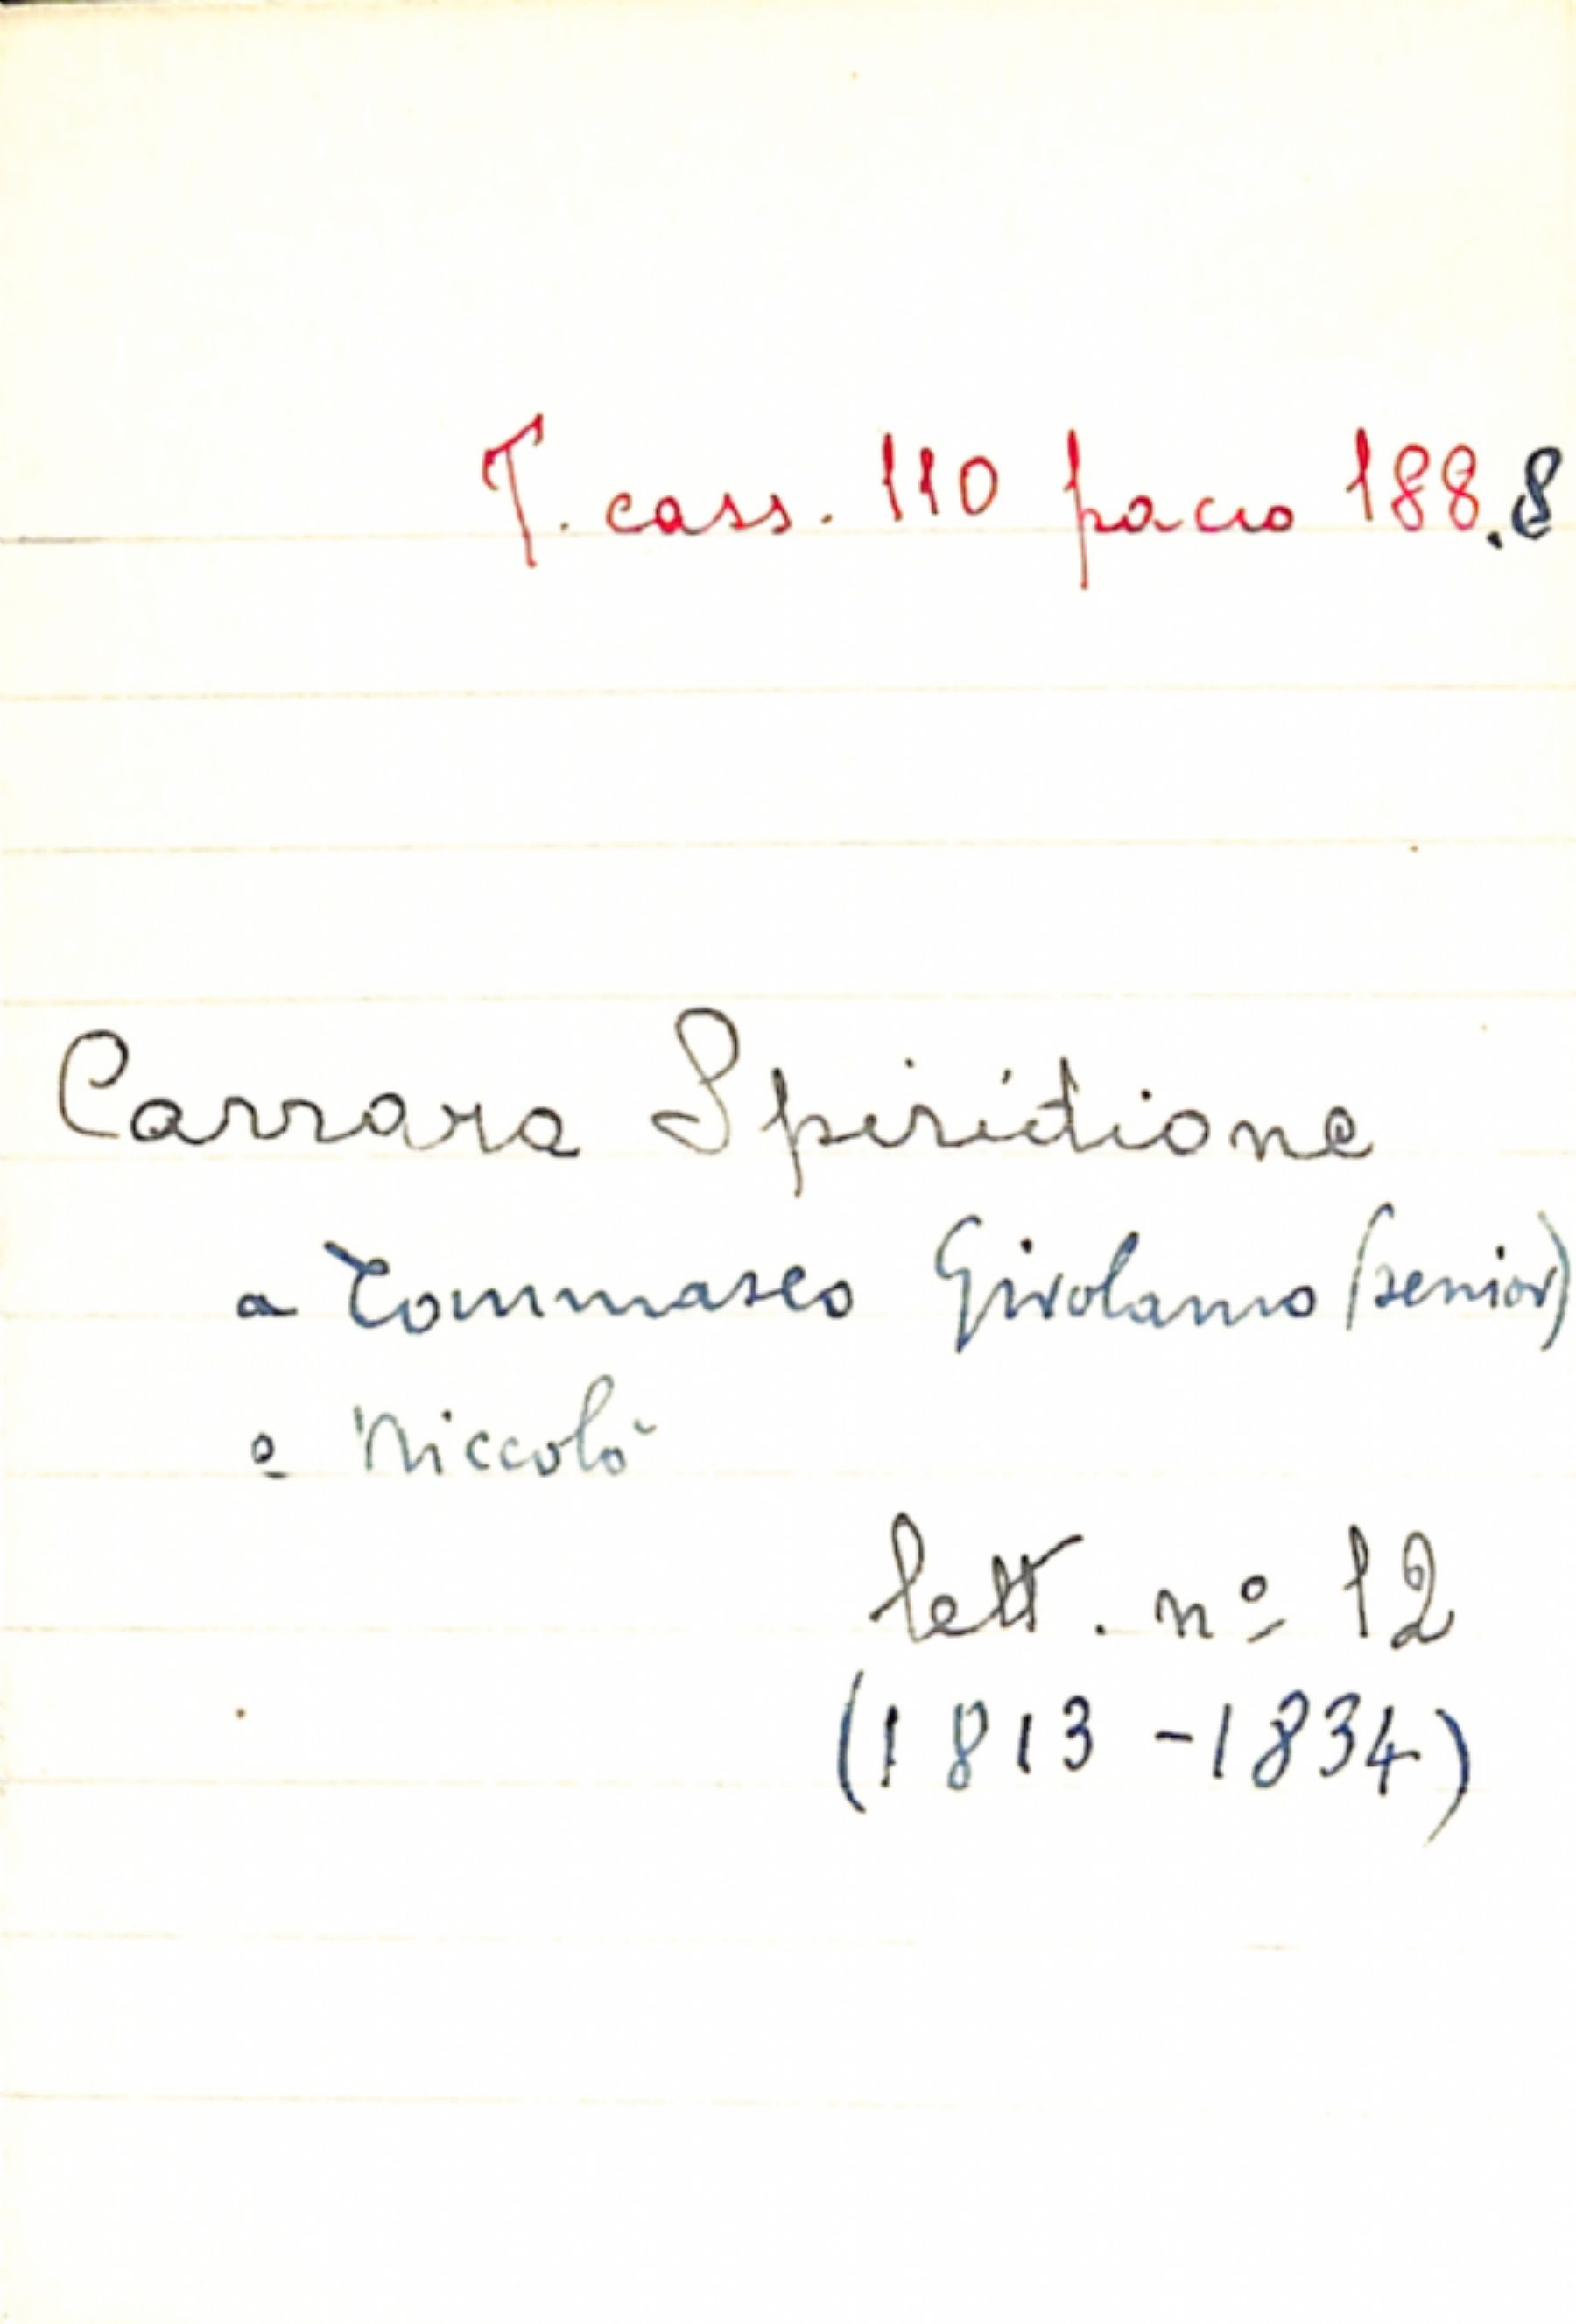 T. cass. 110 pacco 188.8
Carrara Spiridione
a Tommaseo Girolamo (senior)
e Niccolò
lett. nº 12
(1813 - 1834)